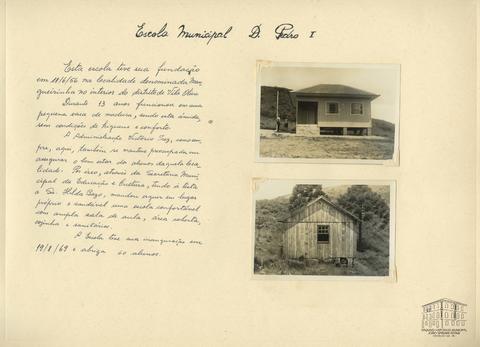 Escola Municipal D. Pedro I
Esta escola teve sua fundação
em 18/6/56 na localidade denominada Man-
gueirinha no interior do distrito de Vila Oliva.
Durante 13 anos funcionou em uma
pequena casa de madeira, sendo esta úmida,
sem condições de higiene e conforto.
A Administração Victório Trez, como sem-
pre, aqui, também se mostrou preocupada em
assegurar o bem estar do alunos daquela loca-
lidade. Por isso, através da Secretaria Muni-
cipal de Educação e Cultura, tendo à testa
a Sr. Hilda Bazo, mandou erguer em lugar
próprio e saudável uma escola confortável
com ampla sala de aula, área coberta,
cozinha e sanitários.
A Escola teve sua inauguração em
19/8/69 e abriga 40 alunos.
ARQUIVO HISTÓRICO MUNICIPAL
JOÃO SPADARI ADAMI